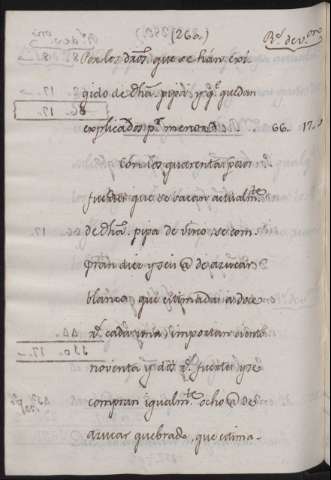 (266.)
R.s de v.on
Por los dros. que se hán exi-
gido de dha. pipa, y q.e quedan
explicados p.r menor. . . . 66. . 17.
Con los quarenta pesos
fuertes que se sacan actualm.te
de dha. pipa de vino, se com-
pran diez y seis @ de azucar
blanca, que estimadas a doce
r.s cada una, importan ciento
noventa y dos r.s fuertes, y se
compran igualm.te ocho @ de
azucar quebrado, que estima-